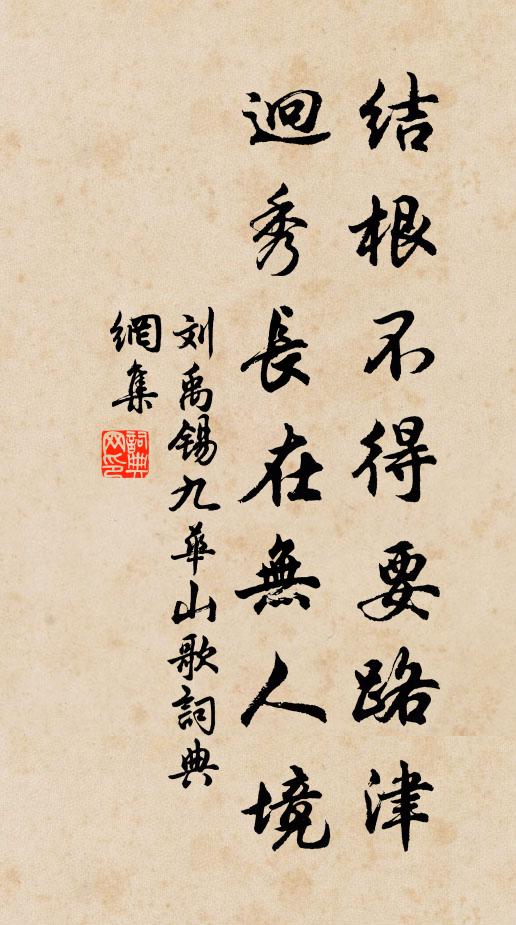 结根不得要路津
迥秀長在無人境
刘禹锡九華山歌詞典
網集
詞典
网印